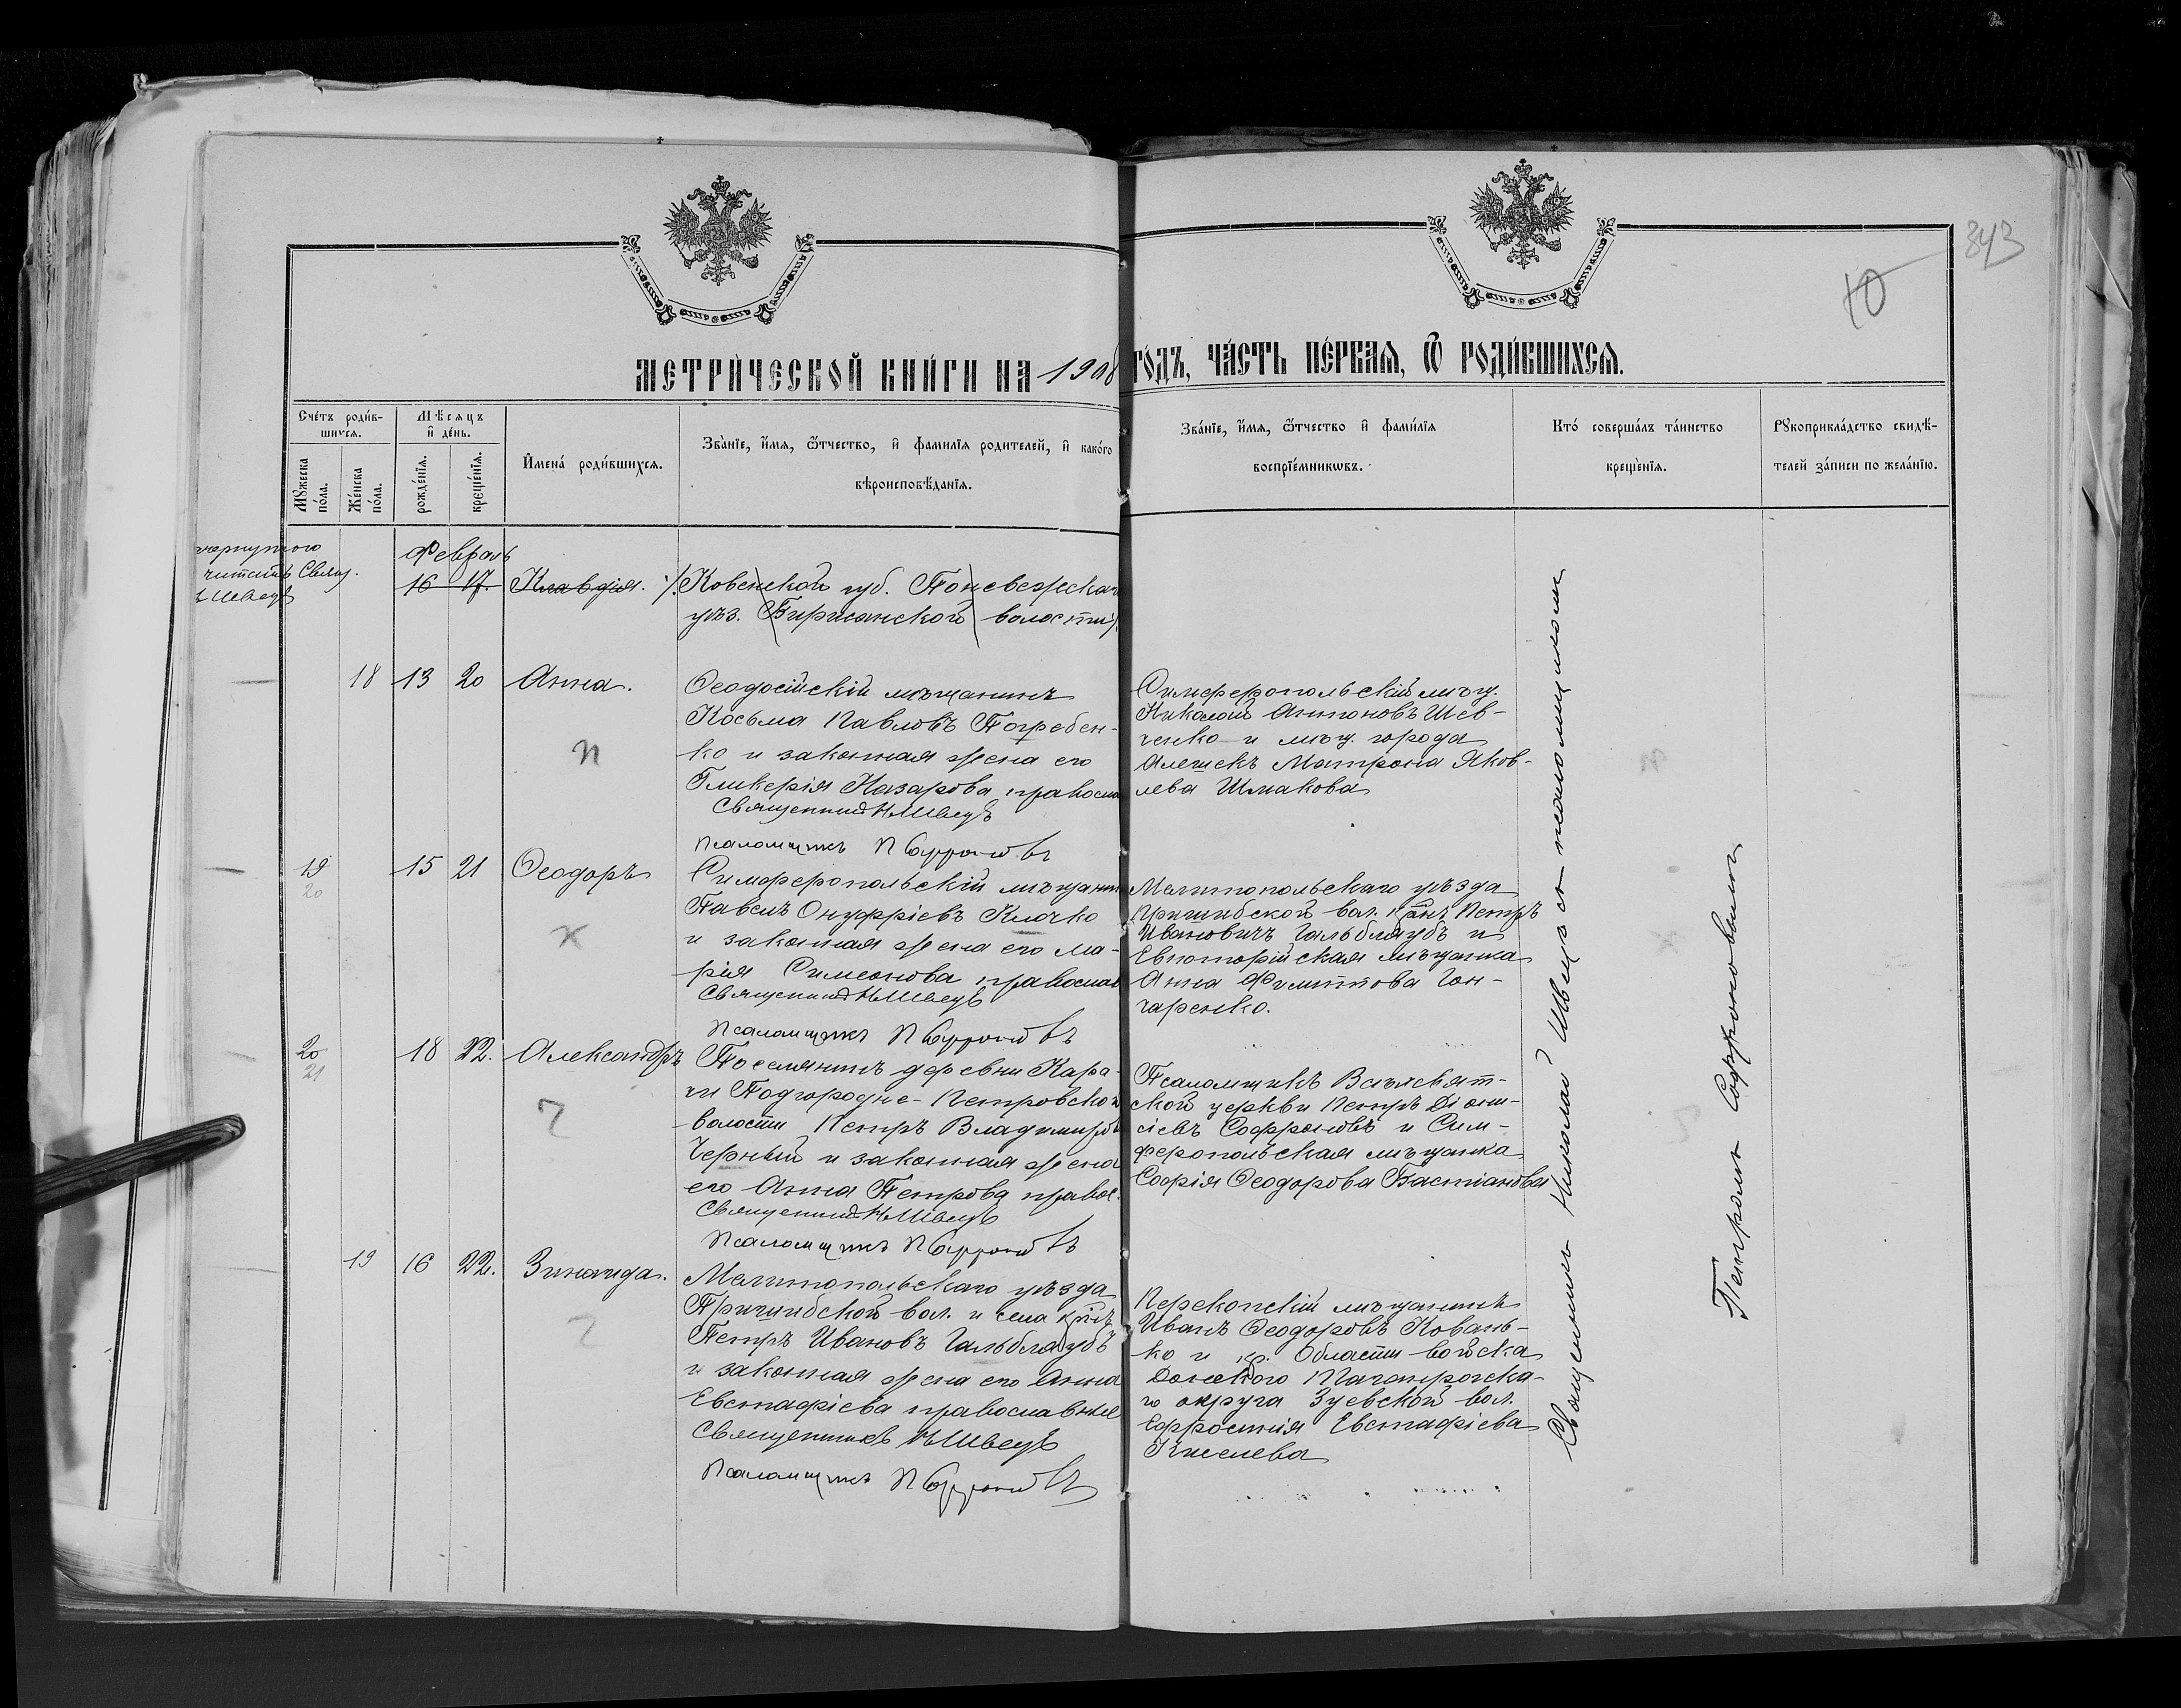 343
10
МЕТРИ́ЧЕСКОЙ КНИ́ГИ НА 1908 ГО́ДЪ, ЧА́СТЬ ПЕ́РВАЯ, Ѿ РОДИ́ВШИХСЯ.
Сче́тъ роди́в-
шихся.
Мѣсяцъ
и де́нь.
Мꙋ́жеска
по́ла.
Же́нска
по́ла.
рожде́нїя.
креще́нїя.
Имена́ роди́вшихся.
Зва́нїе, и́мя, ѻ҆́тчество, и фамилїя родителей, и како́го
вѣроисповѣ́данїя.
Зва́нїе, и́мя, ѻ҆́тчество и фами́лїя
воспрїе́мникѡвъ.
Кто́ соверша́лъ та́инство
креще́нїя.
Рꙋкоприкла́дство свидѣ́-
телей за́писи по жела́нїю.
черкнутого
читать Свящ.
Н Швецъ
Февраль
16 17. Клавдія. Ковенской губ. Поневежскаго
уѣз. Биржанской волости
18 13 20 Анна.
Ѳеодосійскій мѣщанинъ
Косьма Павловъ Погребен-
ко и законная жена его
Гликерія Назарова правосла
Священникъ Н Швецъ
Псаломщикъ П Софроновъ
Симферопольскій мѣщ.
Николай Антоновъ Шев-
ченко и мѣщ. города
Алешекъ Матрона Яков-
лева Шмакова
19
20
15 21 Ѳеодоръ
Симферопольскій мѣщанин
Павелъ Онуфріевъ Клочко
и законная жена его Ма-
рія Симеонова православ
Священникъ Н Швецъ
Псаломщикъ П Софроновъ
Мелитопольскаго уѣзда
Пришибской вол. Петръ
Ивановичъ Гальблаубъ и
Евпаторійская мѣщанка
Анна Филиппова Гон-
чаренко.
20
21
18 22. Александръ
Поселянинъ деревни Кара-
чи Подгородне-Петровской
волости Петръ Владимиров
Черный и законная жена
его Анна Петрова правос.
Священникъ Н Швецъ
Псаломщикъ П Софроновъ
Псаломщикъ Всѣхсвят-
ской церкви Петръ Діони-
сіевъ Софроновъ и Сим-
феропольская мѣщанка
Софія Ѳеодорова Бастіанова
19 16 22. Зинаида.
Мелитопольскаго уѣзда
Пришибской вол. и села
Петръ Ивановъ Гальблаубъ
и законная жена его Анна
Евстафіева православные
Священникъ Н Швецъ
Псаломщикъ П Софроновъ
Перекопскій мѣщанинъ
Иванъ Ѳеодоровъ Ковань-
ко и кр. Области войска
Донского Таганрогска-
го округа Зуевской вол.
Ефросинія Евстафіева
Киселева
Священникъ Николай Швецъ съ псаломщикомъ
Петромъ Софроновымъ